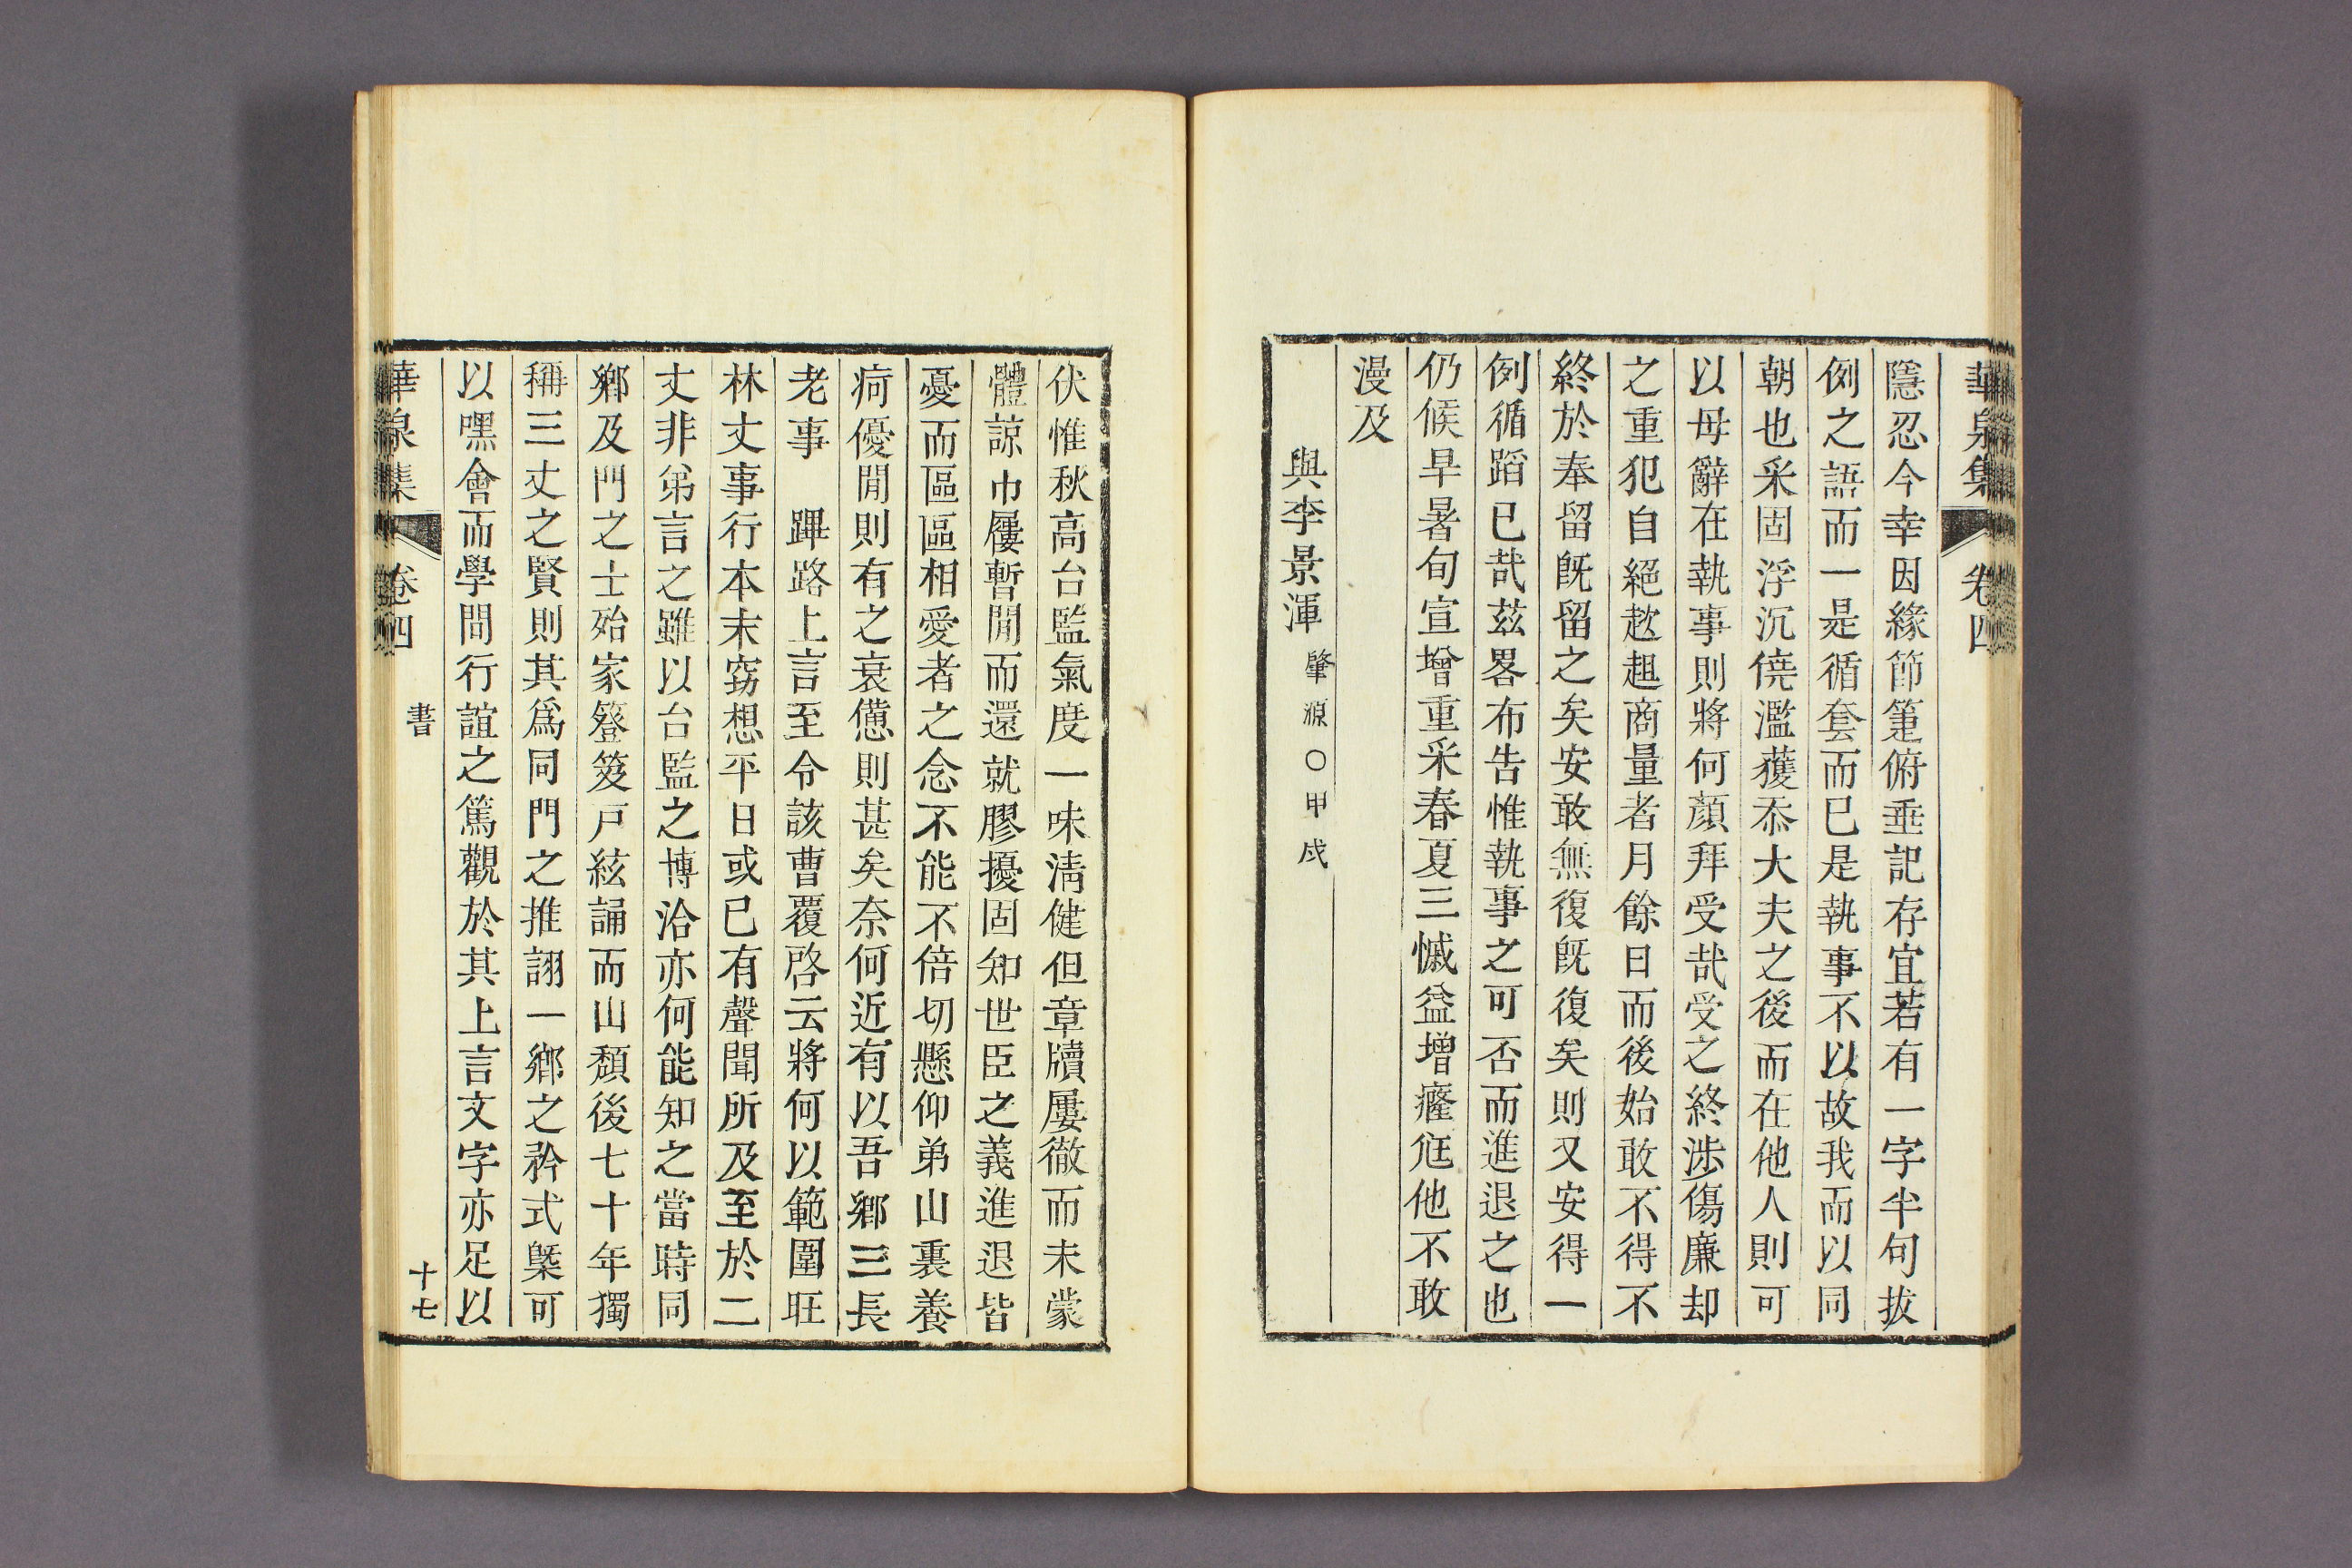 華泉集 卷四
隱忍今幸因緣節箑俯垂記存宜若有一字半句拔
例之語而一是循套而已是執事不以故我而以同
朝也采固浮沉僥濫獲忝大夫之後而在他人則可
以母辭在執事則將何顏拜受哉受之終涉傷廉却
之重犯自絕趑趄商量者月餘日而後始敢不得不
終於奉留旣留之矣安敢無復旣復矣則又安得一
例循蹈已哉玆畧布告惟執事之可否而進退之也
仍候旱暑旬宣增重采春夏三慽益增癃尫他不敢
漫及
與李景渾肇源○甲戌
伏惟秋高台監氣度一味淸健但章牘屢徹而未蒙
體諒巾屨暫閒而還就膠擾固知世臣之義進退皆
憂而區區相愛者之念不能不倍切懸仰弟山裏養
疴優閒則有之衰憊則甚矣奈何近有以吾鄕三長
老事 蹕路上言至令該曹覆啓云將何以範圍旺
林丈事行本末窃想平日或已有聲聞所及至於二
丈非弟言之雖以台監之博洽亦何能知之當時同
鄕及門之士殆家簦笈戶絃誦而山頹後七十年獨
稱三丈之賢則其爲同門之推詡一鄕之矜式槩可
以嘿會而學問行誼之篤觀於其上言文字亦足以
華泉集 卷四 書 十七